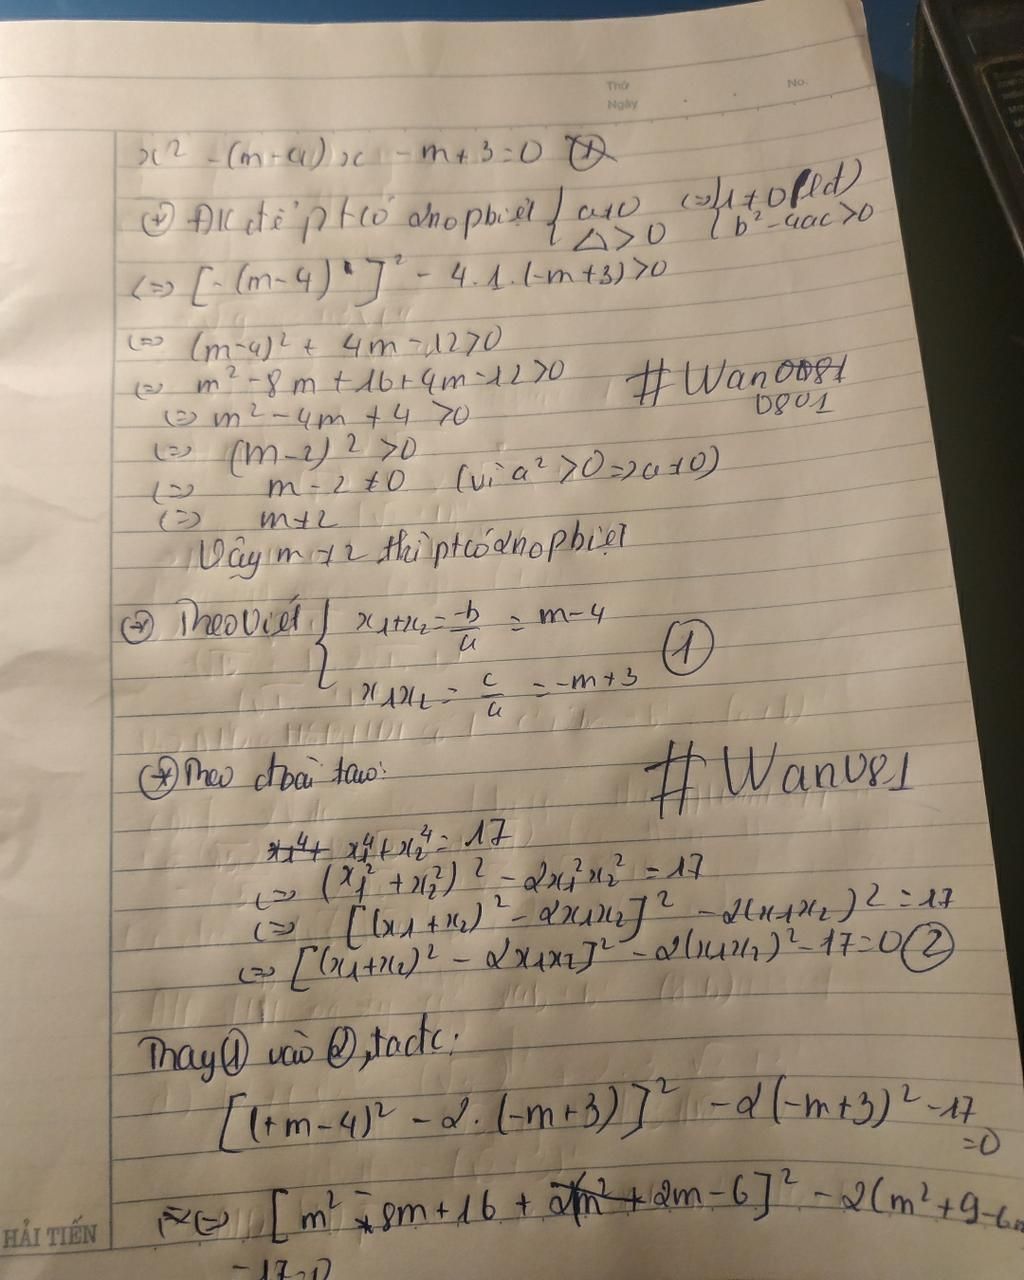 Thứ
No.
Ngày
x² - (m-4)x - m+3=0 (*)
(*) ĐK để pt có 2 no pbiệt { a≠0 <=> { 1≠0 (lđ)
Δ>0 b²-4ac>0
<=> [-(m-4)]² - 4.1.(-m+3)>0
<=> (m-4)² + 4m-12>0
<=> m²-8m+16+4m-12>0
#Wan0081
<=> m²-4m+4>0
0801
<=> (m-2)²>0
<=> m-2≠0 (vì a²>0=>a≠0)
<=> m≠2
Vậy m≠2 thì pt có 2 no pbiệt
(*) Theo Viét { x1+x2 = -b/a = m-4
x1x2 = c/a = -m+3 (1)
(*) Theo đbài ta có:
#Wan081
x1⁴+ x1⁴+x2⁴=17
<=> (x1²+x2²)² - 2x1²x2² = 17
<=> [(x1+x2)² - 2x1x2]² - 2(x1x2)² = 17
<=> [(x1+x2)² - 2x1x2]² - 2(x1x2)² - 17=0 (2)
Thay (1) vào (2), ta đc:
[(+m-4)² - 2.(-m+3)]² - 2(-m+3)² - 17
=0
<=> [m² - 8m+16 + 2m-6]² - 2(m²+9-6m
-17=0
HẢI TIẾN